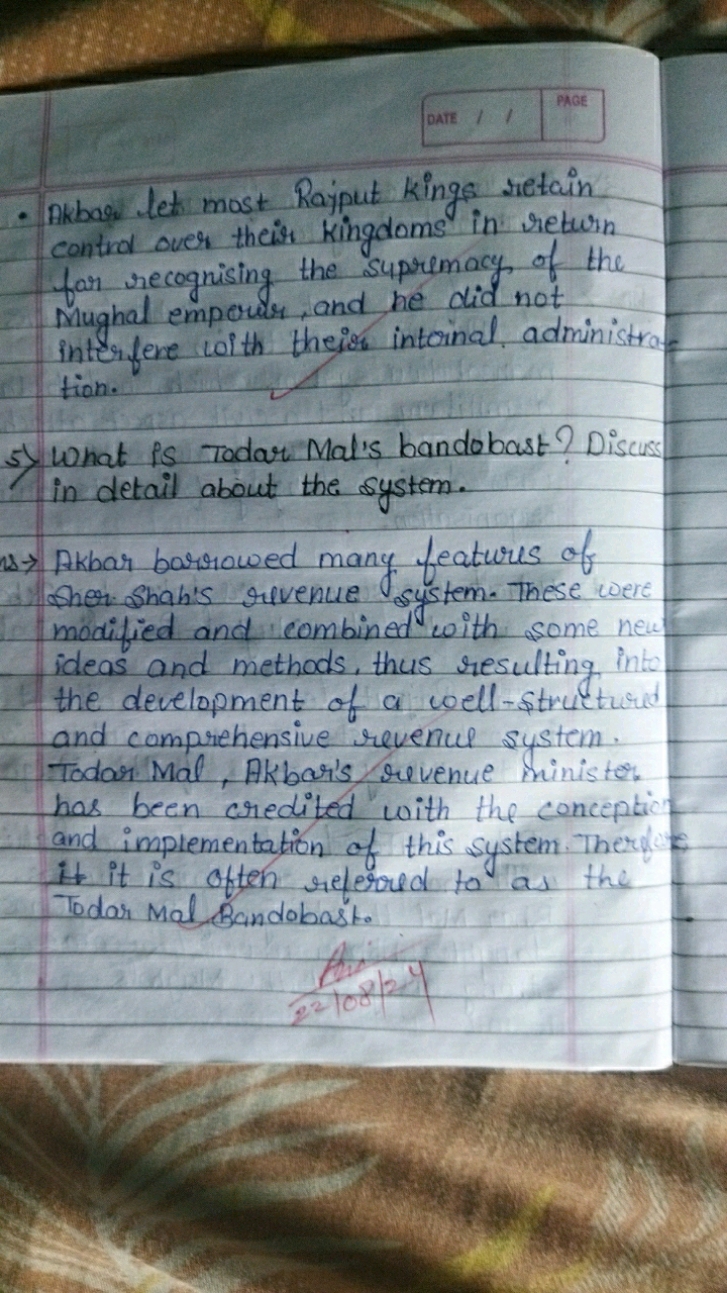 DATE / / PAGE
• Akbar let most Rajput kings retain
control over their kingdoms in return
for recognising the supremacy of the
Mughal emperor, and he did not
interfere with their internal administra-
tion.
5) What is Todar Mal's bandobast? Discuss
in detail about the system.
Ans→ Akbar borrowed many features of
Sher Shah's revenue system. These were
modified and combined with some new
ideas and methods, thus resulting into
the development of a well-structured
and comprehensive revenue system.
Todar Mal, Akbar's revenue minister
has been credited with the conception
and implementation of this system. Therefore
it it is often referred to as the
Todar Mal Bandobast.
22/08/24